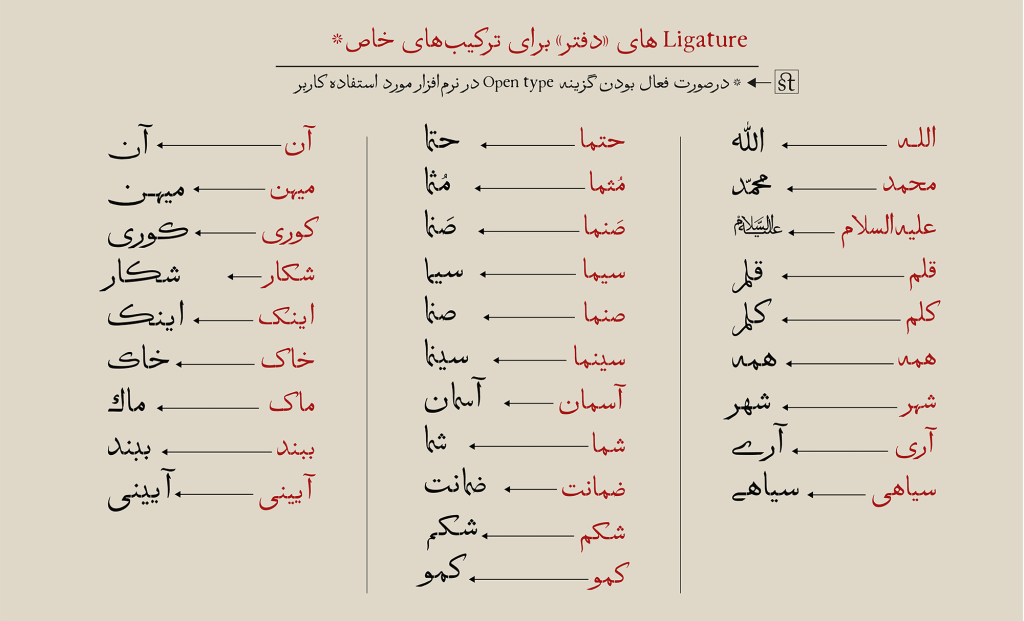 Ligature های «دفتر» برای ترکیب‌های خاص*
* درصورت فعال بودن گزینه Open type در نرم‌افزار مورد استفاده کاربر
اللـه ← الله
محمد ← محمّد
علیه‌السلام ← علیه‌السّلام
قلم ← قلم
کلم ← کلم
همه ← همه
شهر ← شهر
آری ← آرے
سیاهی ← سیاهے
حتما ← حتما
مُثما ← مُثما
صَنما ← صَنما
سیما ← سیما
صنما ← صنما
سینما ← سینما
آسمان ← آسمان
شما ← شما
ضمانت ← ضمانت
شکم ← شکم
کمو ← کمو
آن ← آن
میهن ← میهـن
کوری ← کوری
شکار ← شکار
اینک ← اینک
خاک ← خاک
ماک ← ماك
ببند ← ببند
آیینی ← آیینی